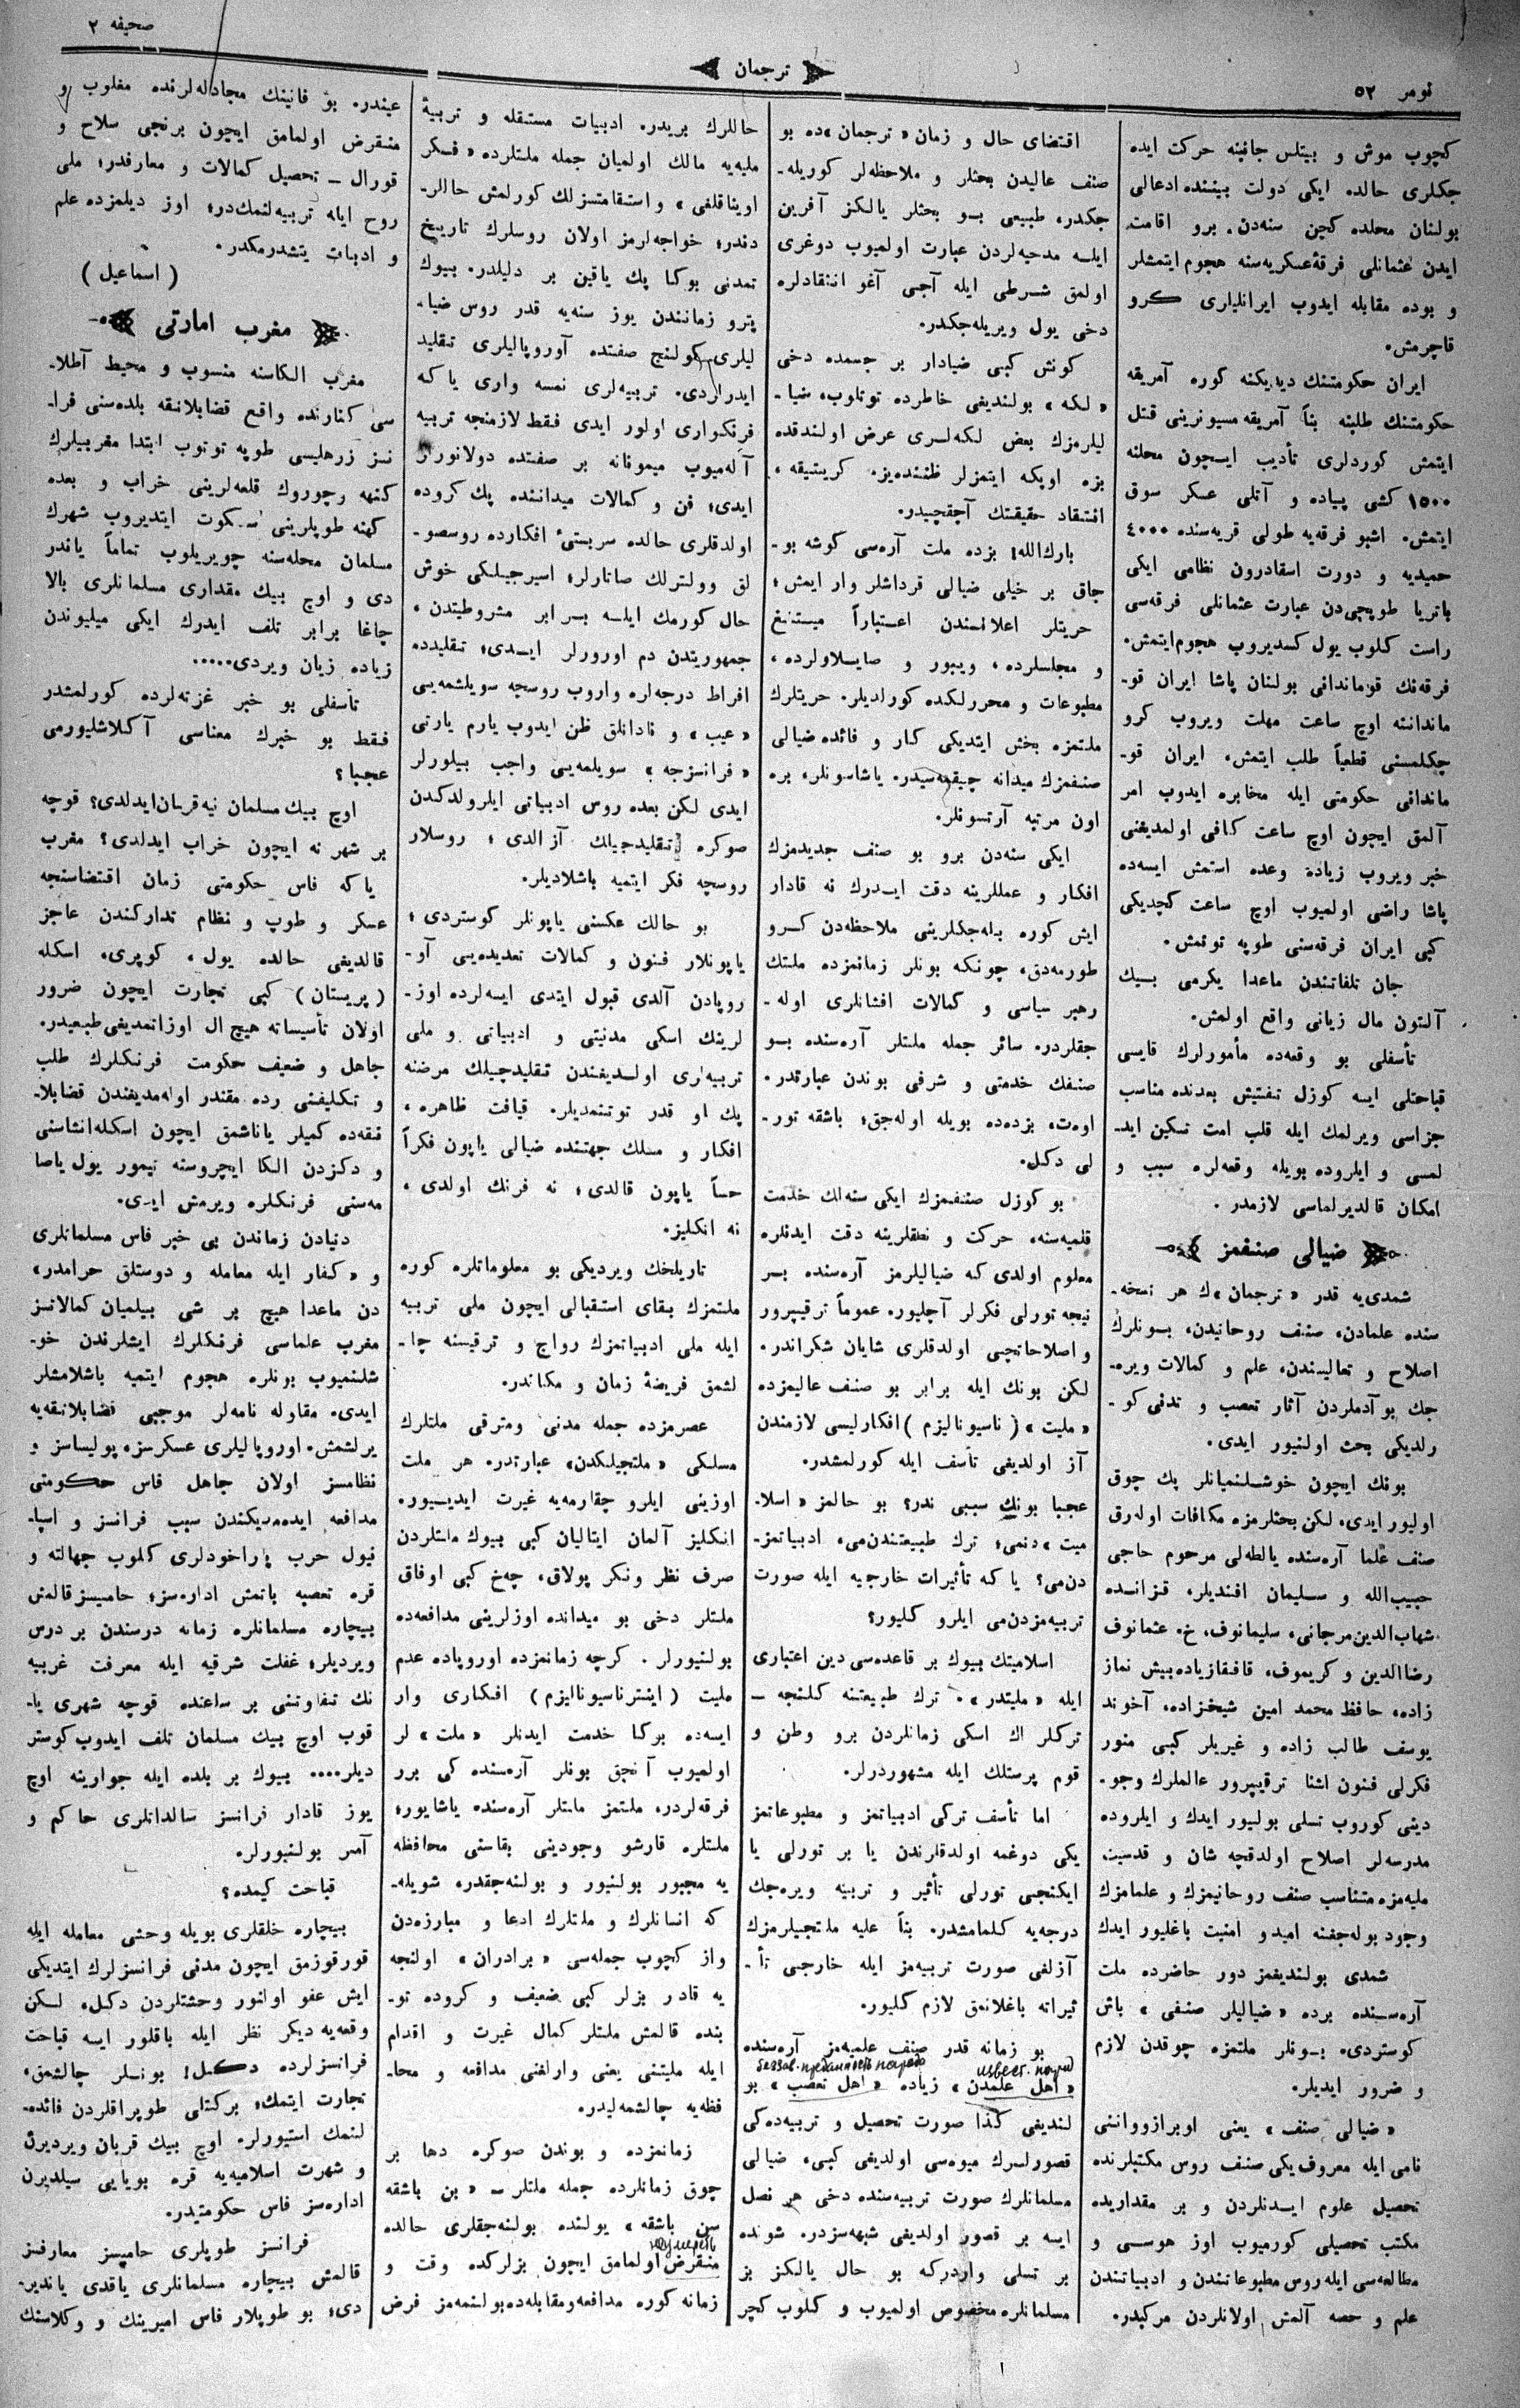 صحیفه ۲
ترجمان
نومر ۵۲
كچوب موش و بیتلس جانبنه حركت ایده
جكلری حالده ایكی دولت بیننده ادعالی
بولنان محلده كچن سنه‌دن برو اقامت
ایدن عثمانلی فرقهٔ عسكریه‌سنه هجوم ایتمشلر
و بوده مقابله ایدوب ایرانلیلری كرو
قاچرمش.
ایران حكومتنك دیدیكنه كوره آمریقه
حكومتنك طلبنه بناً آمریقه مسیونرینی قتل
ایتمش كوردلری تأدیب ایچون محلنه
۱۵۰۰ كشی پیاده و آتلی عسكر سوق
ایتمش. اشبو فرقه‌یه طولی قریه‌سنده ٤٠٠٠
حمیدیه و دورت اسقادرون نظامی ایكی
باتریا طوپچی‌دن عبارت عثمانلی فرقه‌سی
راست كلوب یول كسدیروب هجوم ایتمش.
فرقه‌نك قوماندانی بولنان پاشا ایران قو-
ماندانه اوچ ساعت مهلت ویروب كرو
چكلمسنی قطعیاً طلب ایتمش. ایران قو-
ماندانی حكومتی ایله مخابره ایدوب امر
آلمق ایچون اوچ ساعت كافی اولمدیغنی
خبر ویروب زیاده وعده استمش ایسه‌ده
پاشا راضی اولمیوب اوچ ساعت كچدیكی
كبی ایران فرقه‌سنی طوپه توتمش.
جان تلفاتندن ماعدا یكرمی بیك
آلتون مال زیانی واقع اولمش.
تأسفلی بو وقعه‌ده مأمورلرك قایسی
قباحتلی ایسه كوزل تفتیش بعدنده مناسب
جزاسی ویرلمك ایله قلب امت تسكین اید-
لمسی و ایلروده بویله وقعه‌لره سبب و
امكان قالدیرلماسی لازمدر.
ضیالی صنفمز
شمدی‌یه قدر «ترجمان»ك هر نسخه-
سنده علمادن، صنف روحانیدن، بونلرك
اصلاح و تعالیسندن، علم و كمالات ویره-
جك بو آدملردن آثار تعصب و تدنی كو-
رلدیكی بحث اولنیور ایدی.
بونك ایچون خوشلنمیانلر پك چوق
اولیور ایدی. لكن بحثلرمزه مكافات اوله‌رق
صنف علما آره‌سنده یالطه‌لی مرحوم حاجی
حبیب‌الله و سلیمان افندیلر، قزانده
شهاب‌الدین مرجانی، سلیمانوف، خ. عثمانوف
رضاالدین و كریموف، قافقازیاده بیش نماز
زاده، حافظ محمد امین شیخزاده، آخوند
یوسف طالب زاده و غیریلر كبی منور
فكرلی فنون اشنا ترقیپرور عالملرك وجو-
دینی كوروب تسلی بولیور ایدك و ایلروده
مدرسه‌لر اصلاح اولدقچه شان و قدسیت
ملیه‌مزه متناسب صنف روحانیمزك و علمامزك
وجود بوله‌جغنه امید و امنیت باغلیور ایدك
شمدی بولندیغمز دور حاضرده ملت
آره‌سنده برده «ضیالیلر صنفی» باش
كوستردی. بونلر ملتمزه چوقدن لازم
و ضرور ایدیلر.
«ضیالی صنف» یعنی اوبرازووانّی
نامی ایله معروف یكی صنف روس مكتبلرنده
تحصیل علوم ایدنلردن و بر مقداریده
مكتب تحصیلی كورمیوب اوز هوسی و
مطالعه‌سی ایله روس مطبوعاتندن و ادبیاتندن
علم و حصه آلمش اولانلردن مركبدر.
اقتضای حال و زمان «ترجمان»ده بو
صنف عالیدن بحثلر و ملاحظه‌لر كوریله-
جكدر. طبیعی بو بحثلر یالكز آفرین
ایله مدحیه‌لردن عبارت اولمیوب دوغری
اولمق شرطی ایله آجی آغو انتقادلره
دخی یول ویریله‌جكدر.
كونش كبی ضیادار بر جسمده دخی
«لكه» بولندیغی خاطرده توتلوب، ضیا-
لیلرمزك بعض لكه‌لری عرض اولندقده
بزه اوپكه ایتمزلر ظننده‌یز. كریتیقه،
انتقاد حقیقتك آچقچیدر.
بارك‌الله! بزده ملت آره‌سی كوشه بو-
جاق بر خیلی ضیالی قرداشلر وار ایمش؛
حریتلر اعلانندن اعتباراً میتنغ
و مجلسلرده، ویبور و صایلاولرده،
مطبوعات و محررلكده كورلدیلر. حریتلرك
ملتمزه بخش ایتدیكی كار و فائده ضیالی
صنفمزك میدانه چیقمه‌سیدر. یاشاسونلر، بره
اون مرتبه آرتسونلر.
ایكی سنه‌دن برو بو صنف جدیدمزك
افكار و عمللرینه دقت ایدرك نه قادار
ایش كوره بله‌جكلرینی ملاحظه‌دن كرو
طورمه‌دق، چونكه بونلر زمانمزده ملتك
رهبر سیاسی و كمالات افشانلری اوله-
جقلردر. سائر جمله ملتلر آره‌سنده بو
صنفك خدمتی و شرفی بوندن عبارتدر.
اوت، بزده‌ده بویله اوله‌جق؛ باشقه تور-
لی دكل.
بو كوزل صنفمزك ایكی سنه‌لك خدمت
قلمیه‌سنه، حركت و نطقلرینه دقت ایدنلره
معلوم اولدی كه ضیالیلرمز آره‌سنده بر
نیجه تورلی فكرلر آچلیور. عموماً ترقیپرور
و اصلاحاتچی اولدقلری شایان شكراندر.
لكن بونك ایله برابر بو صنف عالیمزده
«ملیت» (ناسیونالیزم) افكارلیسی لازمندن
آز اولدیغی تأسف ایله كورلمشدر.
عجبا بونك سببی ندر؟ بو حالمز «اسلا-
میت»دنمی؛ ترك طبیعتندن‌می، ادبیاتمز-
دن‌می؟ یا كه تأثیرات خارجیه ایله صورت
تربیه‌مزدن‌می ایلرو كلیور؟
اسلامیتك بیوك بر قاعده‌سی دین اعتباری
ایله «ملیتدر». ترك طبیعتنه كلنجه —
تركلر اك اسكی زمانلردن برو وطن و
قوم پرستلك ایله مشهوردرلر.
اما تأسف تركی ادبیاتمز و مطبوعاتمز
یكی دوغمه اولدقلرندن یا بر تورلی یا
ایكنجی تورلی تأثیر و تربیه ویره‌جك
درجه‌یه كلمامشدر. بناً علیه ملتجیلرمزك
آزلغی صورت تربیه‌مز ایله خارجی تأ-
ثیراته باغلانمق لازم كلیور.
بو زمانه قدر صنف علمیه‌مز آره‌سنده
«اهل علمدن» زیاده «اهل تعصب» بو
لندیغی كذا صورت تحصیل و تربیه‌ده‌كی
قصورلرك میوه‌سی اولدیغی كبی، ضیالی
مسلمانلرك صورت تربیه‌سنده دخی هر نصل
ایسه بر قصور اولدیغی شبهه‌سزدر. شونده
بر تسلی واردركه بو حال یالكز بز
مسلمانلره مخصوص اولمیوب و كلوب كچر
حاللرك بریدر. ادبیات مستقله و تربیهٔ
ملیه‌یه مالك اولمیان جمله ملتلرده «فكر
اویناقلغی» و استقامتسزلك كورلمش حاللر-
دندر؛ خواجه‌لرمز اولان روسلرك تاریخ
تمدنی بوكا پك یاقین بر دلیلدر. بیوك
پترو زمانندن یوز سنه‌یه قدر روس ضیا-
لیلری كولنج صفتده آوروپالیلری تقلید
ایدرلردی. تربیه‌لری نمسه واری یا كه
فرنكواری اولور ایدی فقط لازمنجه تربیه
آله‌میوب میمونانه بر صفتده دولانورلر
ایدی؛ فن و كمالات میداننده پك كروده
اولدقلری حالده سربستیٔ افكارده روسصو-
لق وولترلك صاتارلر؛ اسیرجیلكی خوش
حال كورمك ایله برابر مشروطیتدن،
جمهوریتدن دم اورورلر ایدی؛ تقلیدده
افراط درجه‌لره واروب روسچه سویلشمه‌یی
«عیب» و نادانلق ظن ایدوب یارم یارتی
«فرانسزجه» سویلمه‌یی واجب بیلورلر
ایدی لكن بعده روس ادبیاتی ایلرولدكدن
صوكره تقلیدجیلك آزالدی؛ روسلار
روسچه فكر ایتمیه باشلادیلر.
بو حالك عكسنی یاپونلر كوستردی؛
یاپونلار فنون و كمالات تعدیده‌یی آو-
روپادن آلدی قبول ایتدی ایسه‌لرده اوز-
لرینك اسكی مدنیتی و ادبیاتی و ملی
تربیه‌لری اولدیغندن تقلیدجیلك مرضنه
پك او قدر توتنمدیلر. قیافت ظاهره،
افكار و مسلك جهتنده ضیالی یاپون فكراً
حساً یاپون قالدی؛ نه فرنك اولدی،
نه انكلیز.
تاریخك ویردیكی بو معلوماتلره كوره
ملتمزك بقای استقبالی ایچون ملی تربیه
ایله ملی ادبیاتمزك رواج و ترقیسنه چا-
لشمق فریضهٔ زمان و مكاندر.
عصرمزده جمله مدنی و مترقی ملتلرك
مسلكی «ملتجیلكدن» عبارتدر. هر ملت
اوزینی ایلرو چقارمه‌یه غیرت ایدیور.
انكلیز آلمان ایتالیان كبی بیوك ملتلردن
صرف نظر ونكر پولاق، چه‌خ كبی اوفاق
ملتلر دخی بو میدانده اوزلرینی مدافعه‌ده
بولنیورلر. كرچه زمانمزده اوروپاده عدم
ملیت (اینترناسیونالیزم) افكاری وار
ایسه‌ده بركا خدمت ایدنلر «ملت» لر
اولمیوب آنجق بونلر آره‌سنده كی برر
فرقه‌لردر. ملتمز ملتلر آره‌سنده یاشایور؛
ملتلره قارشو وجودینی بقاسنی محافظه
یه مجبور بولنیور و بولنه‌جقدر. شویله-
كه انسانلرك و ملتلرك ادعا و مبارزه‌دن
واز كچوب جمله‌سی «برادران» اولنجه
یه قادر بزلر كبی ضعیف و كروده تو-
بنده قالمش ملتلر كمال غیرت و اقدام
ایله ملیتنی یعنی وارلغنی مدافعه و محا-
فظه‌یه چالشمه‌لیدر.
زمانمزده و بوندن صوكره دها بر
چوق زمانلرده جمله ملتلر — «بن باشقه
سن باشقه» یولنده بولنه‌جقلری حالده
منقرض اولمامق ایچون بزلركده وقت و
زمانه كوره مدافعه و مقابله‌ده بولنمه‌مز فرض
عیندر. بو فانینك مجادله‌لرنده مغلوب و
منقرض اولمامق ایچون برنجی سلاح و
قورال — تحصیل كمالات و معارفدر؛ ملی
روح ایله تربیه‌لنمك‌در؛ اوز دیلمزده علم
و ادبیات یتشدرمكدر.
(اسماعیل)
مغرب امارتی
مغرب الكاسنه منسوب و محیط آطلا-
سی كنارنده واقع قضابلانقه بلده‌سنی فرا-
نسز زرهلیسی طوپه توتوب ابتدا مغربیلرك
كهنه و چوروك قلعه‌لرینی خراب و بعده
كهنه طوپلرینی سكوت ایتدیروب شهرك
مسلمان محله‌سنه چویریلوب تماماً یاندر
دی و اوچ بیك مقداری مسلمانلری بالا
چاغا برابر تلف ایدرك ایكی میلیوندن
زیاده زیان ویردی.....
تأسفلی بو خبر غزته‌لرده كورلمشدر
فقط بو خبرك معناسی آكلاشلیورمی
عجبا؟
اوچ بیك مسلمان نیه قربان ایدلدی؟ قوجه
بر شهر نه ایچون خراب ایدلدی؟ مغرب
یا كه فاس حكومتی زمان اقتضاسنجه
عسكر و طوپ و نظام تداركندن عاجز
قالدیغی حالده یول، كوپری، اسكله
(پریستان) كبی تجارت ایچون ضرور
اولان تأسیساته هیچ ال اوزاتمدیغی طبعیدر.
جاهل و ضعیف حكومت فرنكلرك طلب
و تكلیفنی رده مقتدر اوله‌مدیغندن قضابلا-
نقه‌ده كمیلر یاناشمق ایچون اسكله انشاسنی
و دكزدن الكا ایچروسنه تیمور یول یاصا
مه‌سنی فرنكلره ویرمش ایدی.
دنیادن زماندن بی خبر فاس مسلمانلری
و «كفار ایله معامله و دوستلق حرامدر»
دن ماعدا هیچ بر شی بیلمیان كمالاتسز
مغرب علماسی فرنكلرك ایشلرندن خو-
شلنمیوب بونلره هجوم ایتمیه باشلامشلر
ایدی. مقاوله نامه‌لر موجبی قضابلانقه‌یه
یرلشمش اوروپالیلری عسكرسز، پولیساسز و
نظامسز اولان جاهل فاس حكومتی
مدافعه ایده‌مدیكندن سبب فرانسز و اسپا-
نیول حرب پاراخودلری كلوب جهالته و
قره تعصبه باتمش اداره‌سز؛ حامیسز قالمش
بیچاره مسلمانلره زمانه درسندن بر درس
ویردیلر؛ غفلت شرقیه ایله معرفت غربیه
نك تفاوتنی بر ساعتده قوجه شهری یا-
قوب اوچ بیك مسلمان تلف ایدوب كوستر
دیلر.... بیوك بر بلده ایله جوارینه اوچ
یوز قادار فرانسز سالداتلری حاكم و
آمر بولنیورلر.
قباحت كیمده؟
بیچاره خلقلری بویله وحشی معامله ایله
قورقوزمق ایچون مدنی فرانسزلرك ایتدیكی
ایش عفو اولنور وحشتلردن دكل. لكن
وقعه‌یه دیكر نظر ایله باقلور ایسه قباحت
فرانسزلرده دكل! بونلر چالشمق،
تجارت ایتمك؛ بركتلی طوپراقلردن فائده-
لنمك استیورلر. اوچ بیك قربان ویردیرن
و شهرت اسلامیه‌یه قره بویایی سیلدیرن
اداره‌سز فاس حكومتیدر.
فرانسز طوپلری حامیسز معارفسز
قالمش بیچاره مسلمانلری یاقدی یاندیر-
دی؛ بو طوپلار فاس امیرینك و وكلاسنك